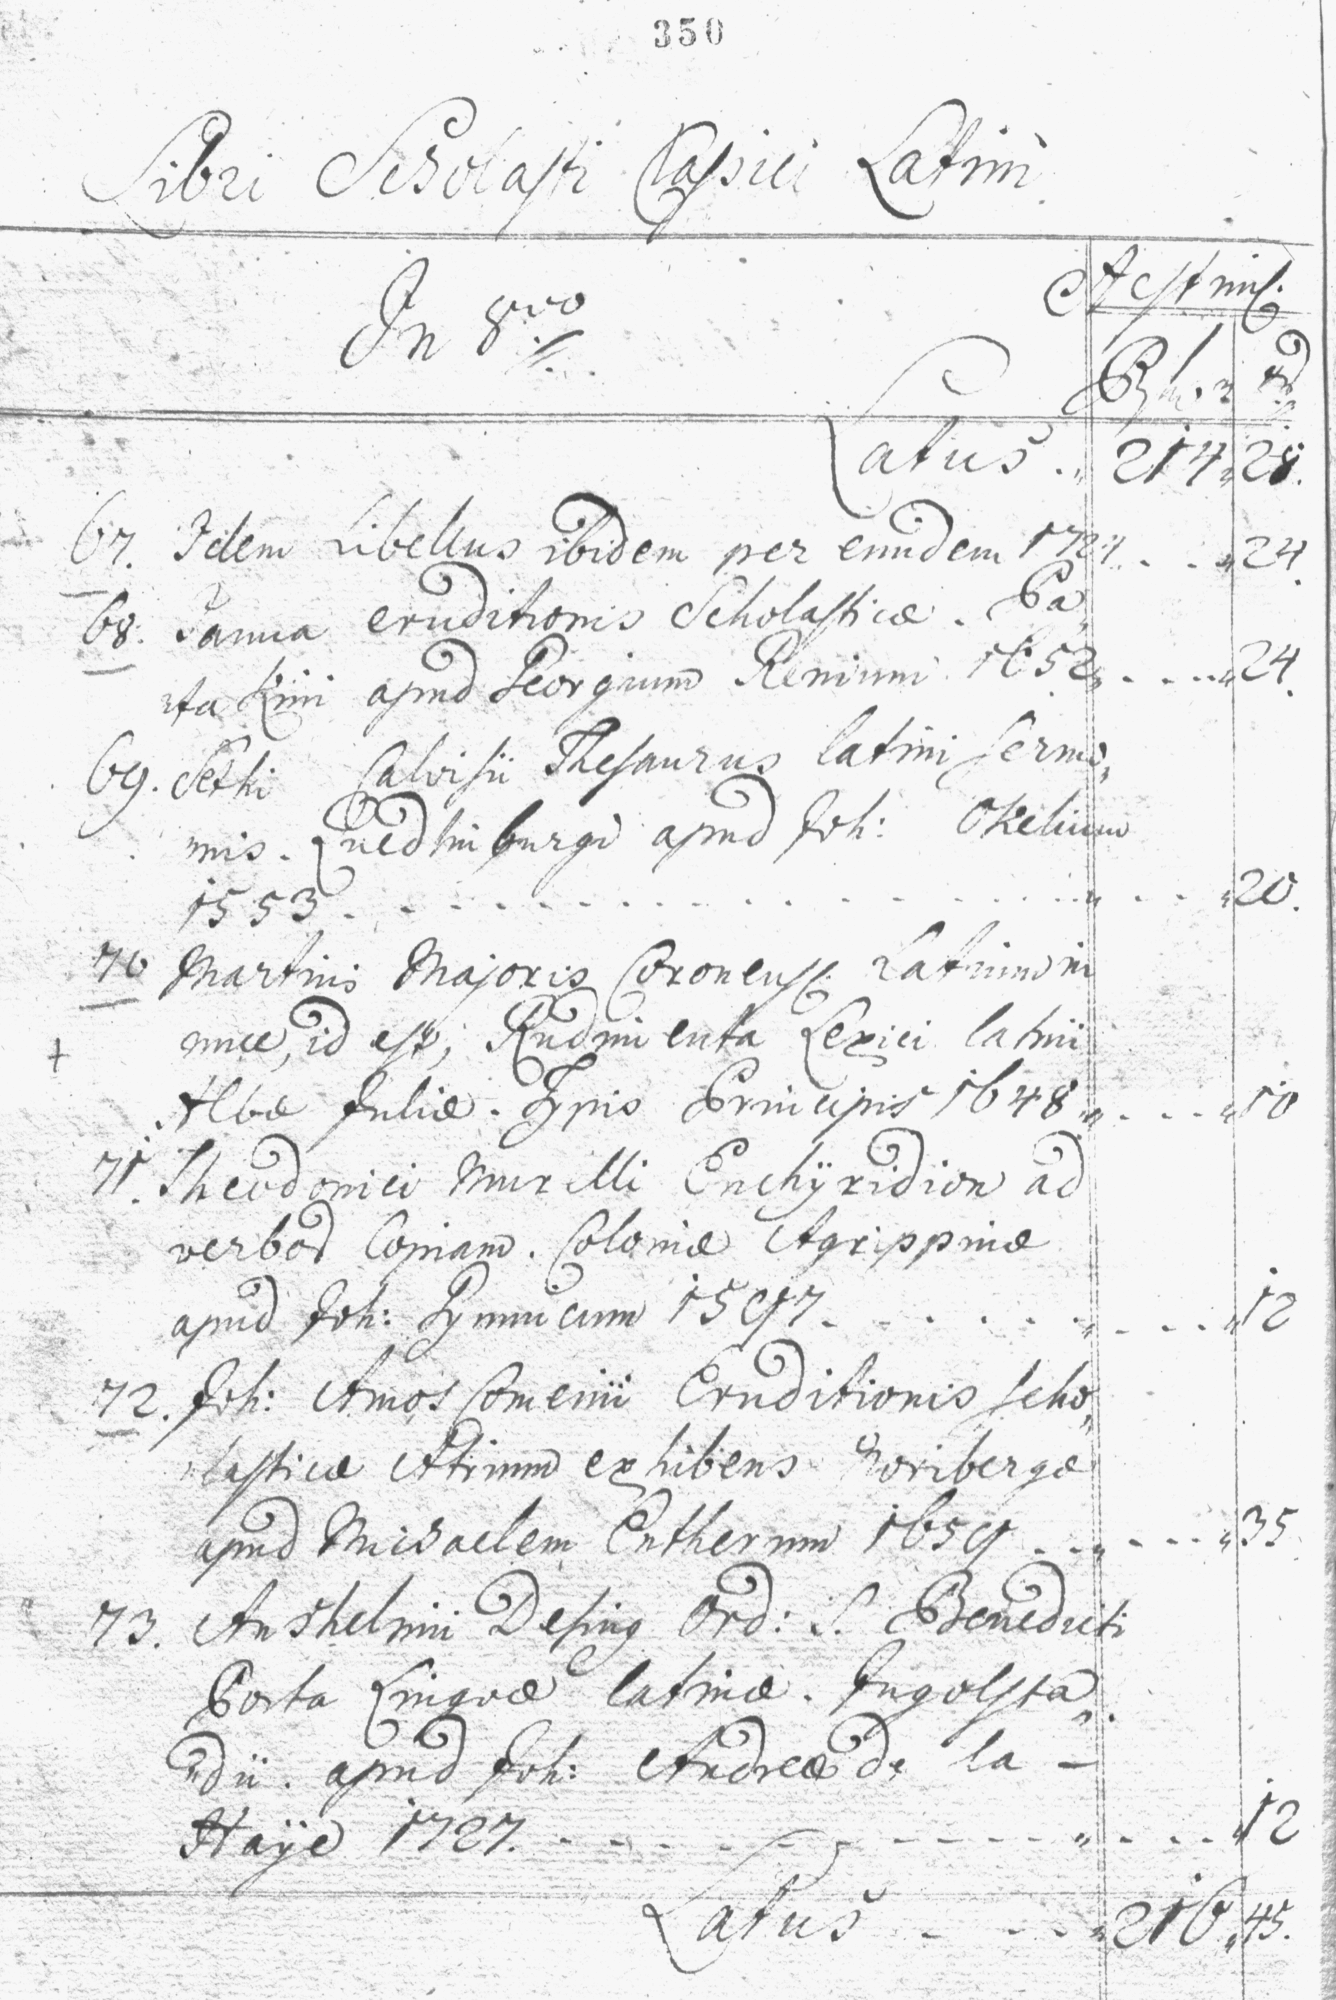 350
Libri Scholasti Classici Latini
In 8vo
Aestim.
Latus . „ 214 „ 28.
67. Idem Libellus ibidem per eundem 1724 . . . „ 24.
68. Janua eruditionis Scholasticæ. Pa„
apud Georgium Renium 1652 „ . . . . „ 24.
69. Sethi Calvisii Thesaurus latini sermo„
nis. Quedlinburgi apud Joh: Okelium
1553 . . . . . . . . . . . . . „ . . . „ 20.
70 Martinis Majoris Coronens: Latinum in
nuce, id est, Rudimenta Lexici latini
Albæ Juliæ. Typis Principis 1648 „ . . . . „ 10
71. Theodorici Murelli Enchÿridion ad
verbor Copiam. Coloniæ Agrippinæ
apud Joh: Gymnicum 1597 . . . . . . „ . . . . „ 12
72. Joh: Amos Comenii Eruditionis scho„
lasticæ Atrium exhibens Noribergæ
apud Michaelem Entherum 1659 . . . „ . . . „ 35
73. Anshelmi Desing Ord: S. Benedicti
Porta Linguæ latinæ. Ingolsta„
„dii. apud Joh: Andreæ de la –
Haÿe 1727. . . . . . . . . . „ . . . . „ 12
Latus . . . . „ 216 „ 45.